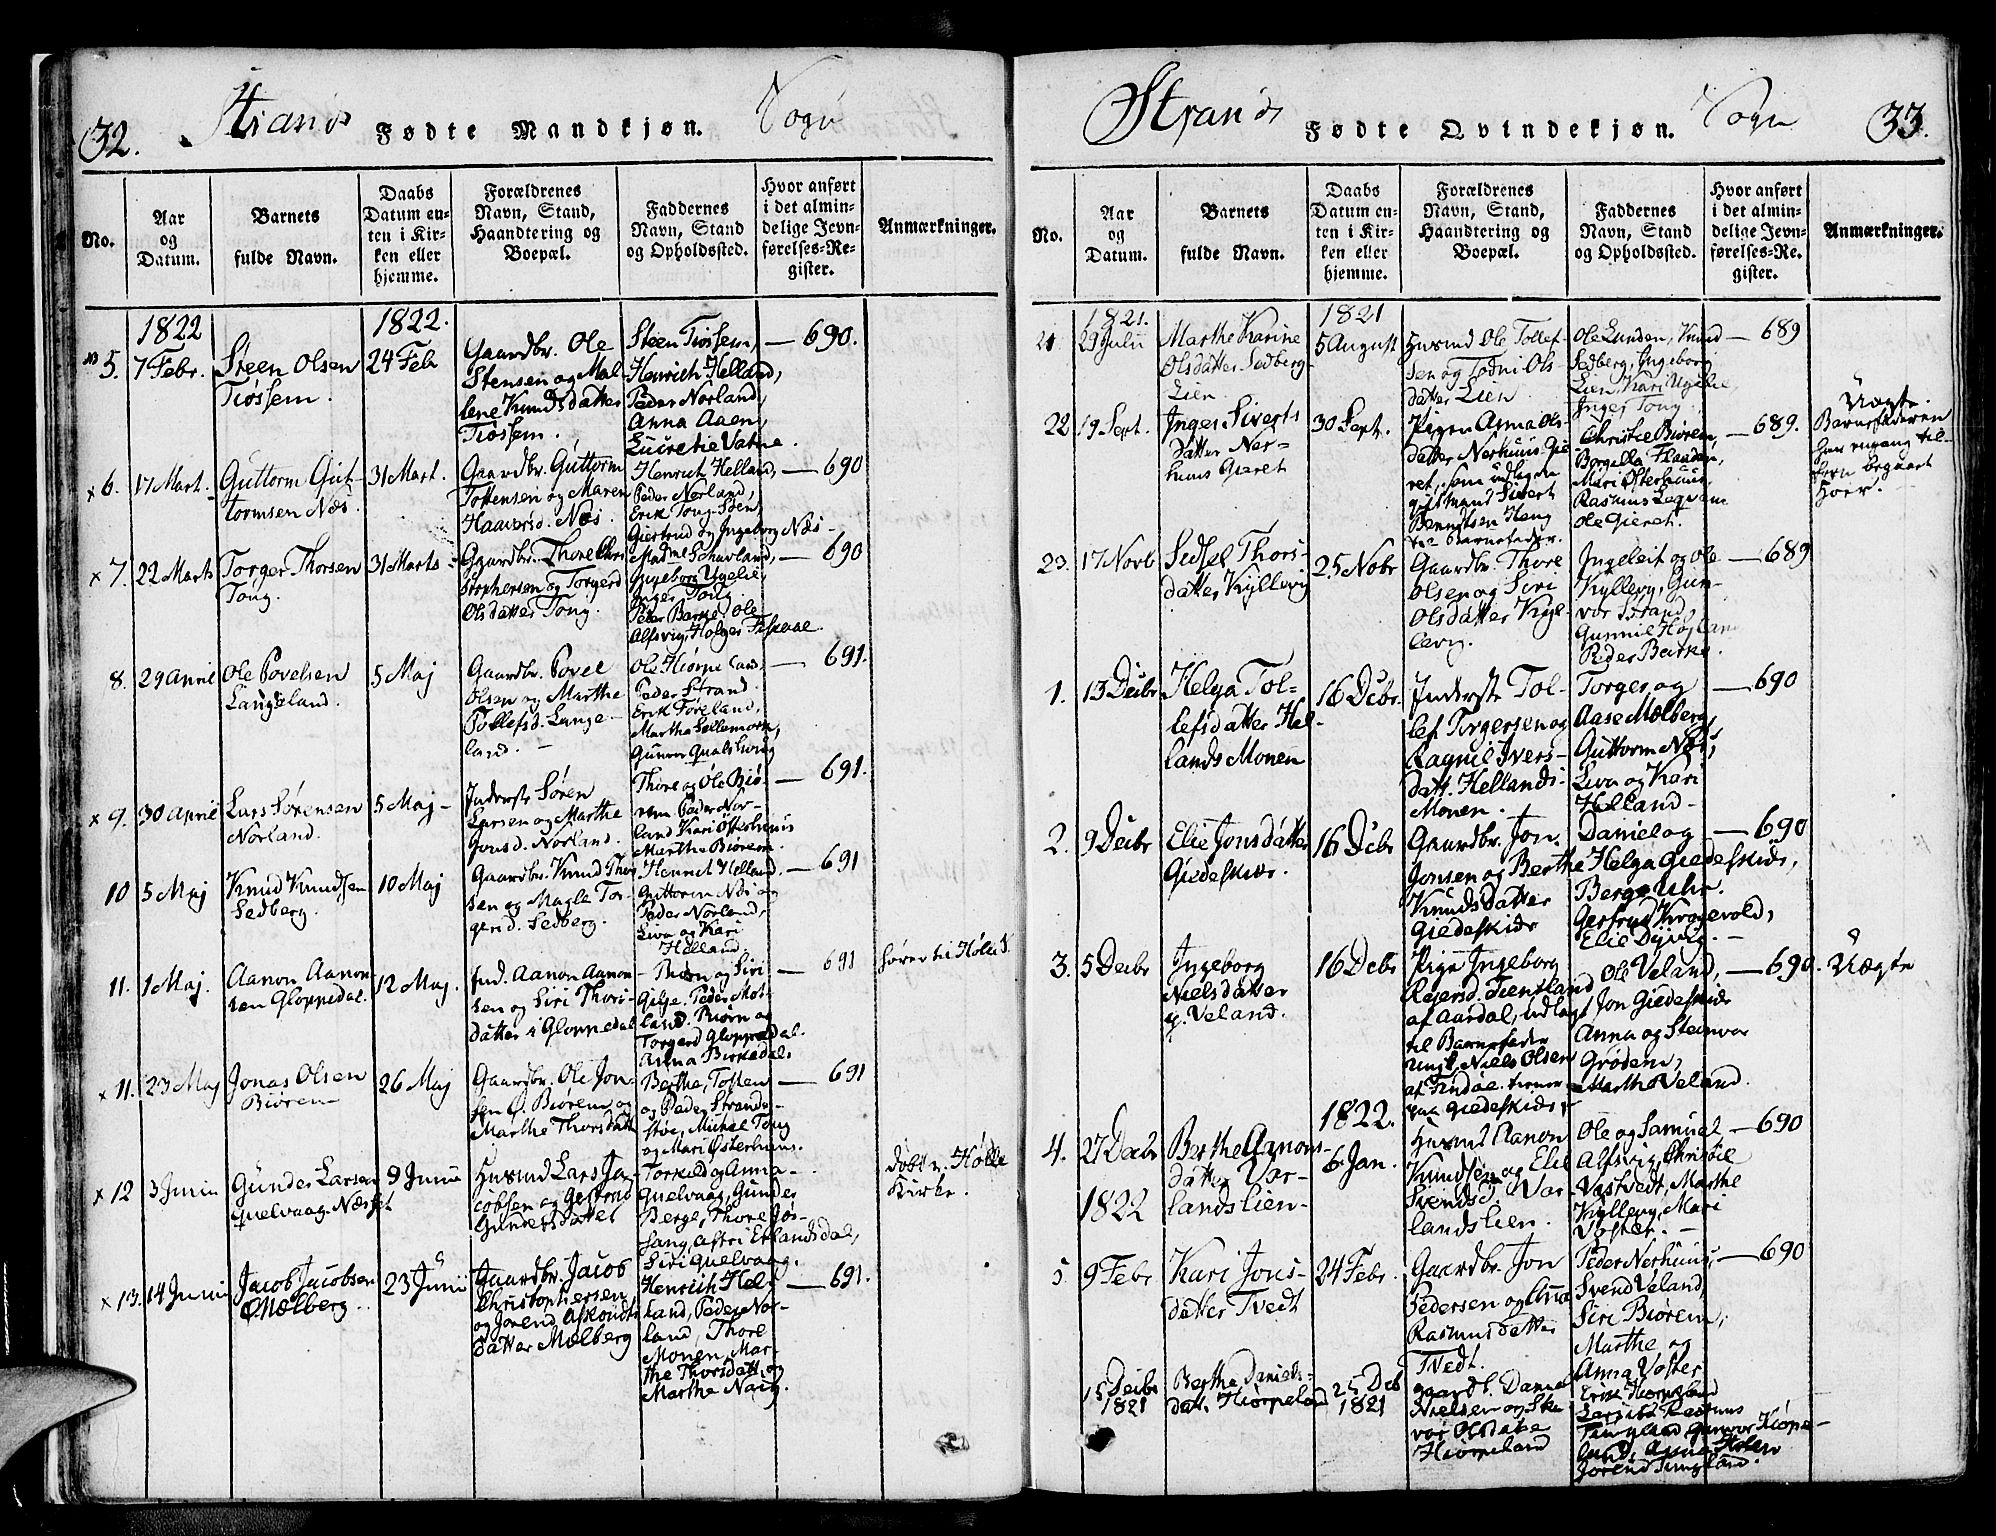 32.
Strands
Fødte Mandkjøn.
Sogn
No.
Aar
og
Datum.
Barnets
fulde Navn.
Daabs
Datum en-
ten i Kir-
ken eller
hjemme.
Forældrenes
Navn, Stand,
Haandtering og
Boepæl.
Faddernes
Navn, Stand
og Opholdssted.
Hvor anført
i det almin-
delige Jevn-
førelses-Re-
gister.
Anmærkninger.
1822
1822.
5.
7 Febr.
Steen Olsen
Tiøssem.
24 Feb
Gaardbr. Ole
Stensen og Mal-
lene Knudsdatter
Tiøssem.
Steen Tiøssem,
Henrich Helland,
Peder Norland,
Anna Aaen,
Lucretie Vatne.
690.
x 6.
17 Mart.
Guttorm Gut-
tormsen Næs.
31 Mart.
Gaardbr. Guttorm
Tostensen og Maren
Haaversd. Næs.
Henrich Helland,
Peder Norland,
Erik Tong
Giertrud og Ingeborg Næs
690
x 7.
22 Marts
Torger Thorsen
Tong.
31 Marts
Gaardbr. Thore Chri
stophersen og Torgerd
Olsdatter Tong.
Madme Schavland,
Ingeborg Ugelie,
Inger Tong
Peder Barke, Ole
Alfsvig, Holger Fiskaae.
690
8.
29 April
Ole Povelsen
Langeland.
5 Maj
Gaardbr. Povel
Olsen og Marthe
Tollefsd. Lange-
land.
Ole Kiørpeland,
Peder Strand.
Erik Føreland,
Martha Sellemork,
Gunvor Qualshoug
691.
x 9.
30 April
Lars Sørensen
Norland.
5 Maj
Inderste Søren
Larsen og Marthe
Jonsd. Norland.
Thore og Ole Biø-
rem Peder Nor-
land Kari Østerhuus
Marthe Biørem.
691.
10
5 Maj
Knud Knudsen
Sedberg.
10 Maj
Gaardbr. Knud Thor
sen og Magle Tor-
gerd. Sedberg.
Henrich Helland.
Guttorm Næs og
Peder Norland,
Liva og Kari
Helland.
691
11.
1 Maj.
Aanon Aanon-
sen Gloppedal.
12 Maj.
Ind. Aanon Aanon-
sen og Siri Thors-
datter i Gloppedal
Biørn og Siri
Gilje. Peder Mos-
land. Biørn og
Torgerd Gloppedal.
Anna Birkedal.
691
hører til Hølle S.
x 11.
23 Maj
Jonas Olsen
Biørem
26 Maj
Gaardbr. Ole Jon-
sen Ø. Biørem og
Marthe Thorsdatt
Berthe, Tosten
og Peder Strands-
støe, Michel Tong
og Mari Østerhuus.
691
x 12
3 Junii
Gunder Larsen
Quelvaag-Næsset
9 Junii
Husmd Lars Ja-
cobsen og Gertrud
Gundersdatter
Torkel og Anna
Quelvaag, Gunder
Berge, Thore Jøs-
sang, Astri Erlandsdal,
Siri Quelvaag.
døbt v. Hølle
Kirke.
x 13.
14 Junii
Jacob Jacobsen
Mælberg.
23 Junii
Gaardbr. Jacob
Christophersen
og Jorend Askouds
datter Mælberg
Henrich Hel-
land, Peder Nor-
land, Thore
Monen, Mar-
the Thorsdatt. og
Marthe Naig.
691.
Strands
Fødte Qvindekjøn.
Sogn
33.
No.
Aar
og
Datum.
Barnets
fulde Navn.
Daabs
Datum en-
ten i Kir-
ken eller
hjemme.
Forældrenes
Navn, Stand,
Haandtering og
Boepæl.
Faddernes
Navn, Stand
og Opholdssted.
Hvor anført
i det almin-
delige Jevn-
førelses-Re-
gister.
Anmærkninger.
1821.
1821
21
29 Julii
Marthe Karine
Olsdatter Sedberg-
Lien.
5 August
Husmd Ole Tollef
sen og Todni Ols-
datter Lien
Ole Lunden, Knud
Sedberg, Ingeborg
Lien, Kari Ugelie,
Inger Tong.
689
22
19 Sept.
Inger Siverts
datter Ner-
huus Gieret
30 Sept.
Pigen Anna Ols-
datter Nerhuus Gie
ret, som udlagde
gift mand Sivert
Berentsen Haug
til Barnefader.
Christie Biørem,
Borgilla
Mari Østerhuus,
Rasmus
Ole Gieret.
689.
Uægte
Barnefaderen
har engang til-
forn begaaet
Hoer.
23.
17 Novb
Sedsel Thors-
datter Kyllevig
25 Nobr
Gaardbr. Thore
Olsen og Siri
Olsdatter Kyl-
levig.
Ingeleit og Ole
Kyllevig, Gun-
vor Strand,
Gunnil Høyland
Peder Barke.
689
1.
13 Decbr
Helga Tol-
lefsdatter Hel-
lands Monen
16 Dcbr.
Inderste Tol-
lef Torgersen og
Ragnil Ivers-
datt. Hellands-
Monen.
Torger og
Aase Mælberg,
Guttorm Næs,
Liva og Kari
Helland.
690
2.
9 Decbr
Elie Jonsdatter
Giedeskidr.
16 Dcbr
Gaardbr. Jon
Jonsen og Berthe
Knudsdatter
Giedeskidr
Daniel og
Helga Giedeskidr,
Berge Uhr.
Gertrud Krogevold,
Elie Dyvig.
690
3.
5 Decbr
Ingeborg
Nielsdatter
Veland.
16 Dcbr
Pigen Ingeborg
Reiersd. Tienstland
af Aardal, udlagt
til Barnefader
Ungk. Niels Olsen
af Findøe tiener
paa Giedeskidr.
Ole Veland,
Jon Giedeskidr
Anna og Steinvor
Grødem,
Martha Veland.
690.
Uægte
1822.
4.
27 Decbr
1822
Berthe Aanons
datter Var-
landslien
6 Jan.
Husmd Aanon
Knudsen og Elie
Svendsd. Var-
landslien.
Ole og Samuel
Alfsvig, Christie
Vastvedt, Marthe
Kyllevig, Mari
Voster.
690
5.
9 Febr
Kari Jons-
datter Tvedt
24 Febr.
Gaardbr. Jon
Pedersen og Anna
Rasmusdatter
Tvedt.
Peder Nerhuus,
Svend Veland,
Siri Biørem,
Marthe og
Anna Voster
690
15 Decbr
1821
Berthe Daniels-
datt. Kiørpeland
25 Dcb
1821
Gaardb. Daniel
Nielsen og
Olsdatter
Kiørpeland
Erik Kiørpeland
Rasmus
Tungland Gunvor Kiørpe-
land, Anna Holen
Jorend Tungland.